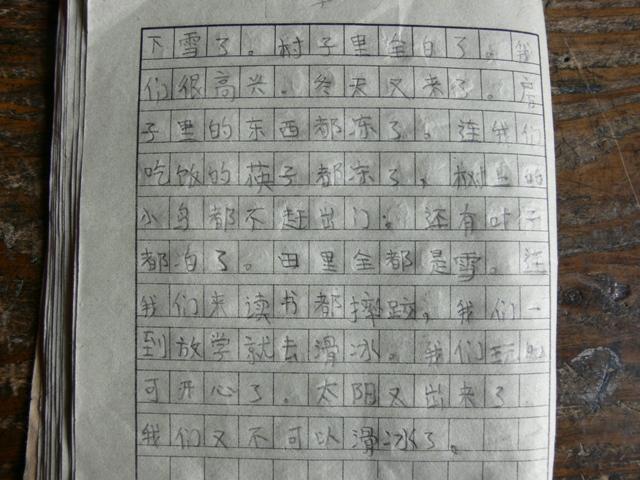 下雪了。村子里全白了。我
们很高兴。冬天又来了。房
子里的东西都冻了,连我们
吃饭的筷子都冻了,树上的
小鸟都不赶出门。还有叶子
都泊了。田里全都是雪。连
我们来读书都摔跤,我们一
到放学就去滑冰。我们玩的
可开心了。太阴又出来了
我们又不可以滑冰了。